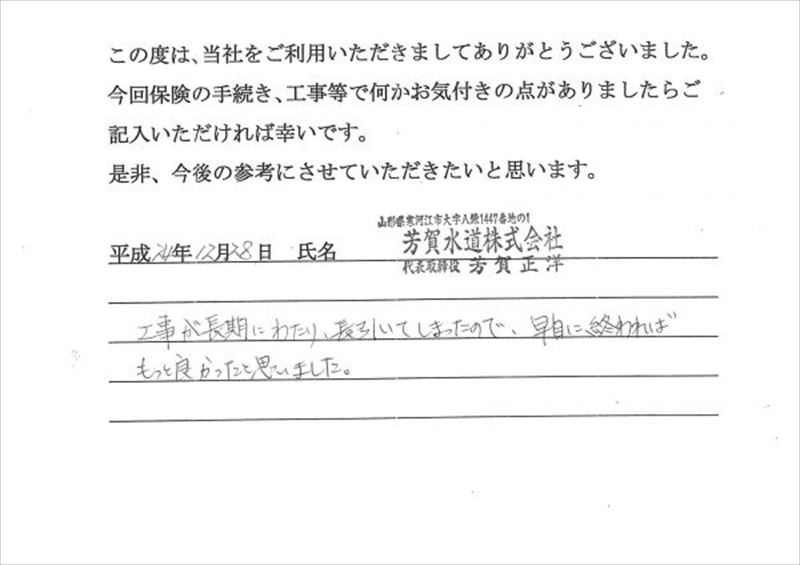 この度は、当社をご利用いただきましてありがとうございました。
今回保険の手続き、工事等で何かお気付きの点がありましたらご
記入いただければ幸いです。
是非、今後の参考にさせていただきたいと思います。
山形県寒河江市大字八鍬1447番地の1
平成24年12月28日 氏名 芳賀水道株式会社
代表取締役 芳賀正洋
工事が長期にわたり、長引いてしまったので、早目に終われば
もっと良かったと思いました。